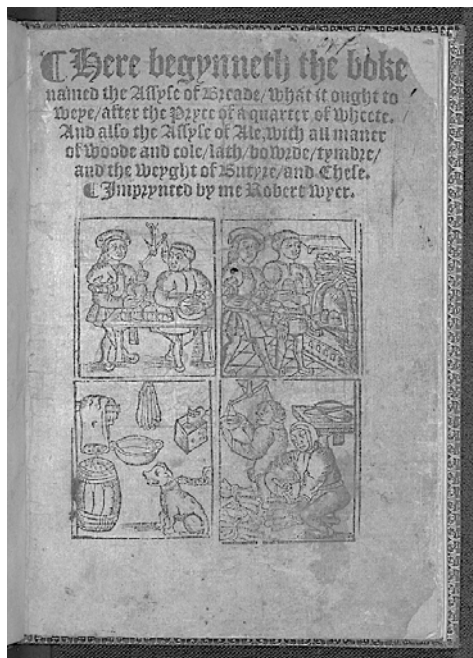 ¶ Here begynneth the boke
named the Assyse of Breade/what it ought to
weye/after the Pryce of a quarter of wheete.
And also the Assyse of Ale, with all maner
of woode and cole/lath/bowrde/tymbre/
and the weyght of Butyre/and Chese.
¶ Imprynted by me Robert Wyer.